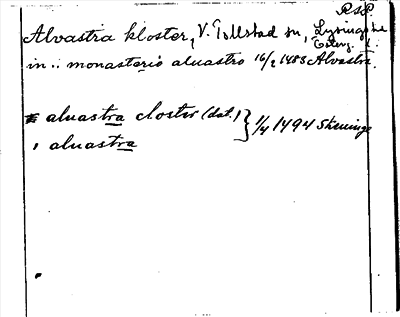 R.S.P.
Alvastra kloster, V. Tollstad sn, Lysings hd
Österg. l.
in .. monasterio aluastro 16/2 1483 Alvastra.
aluastra closter (dat.) } 1/4 1494 Skeninge
aluastra